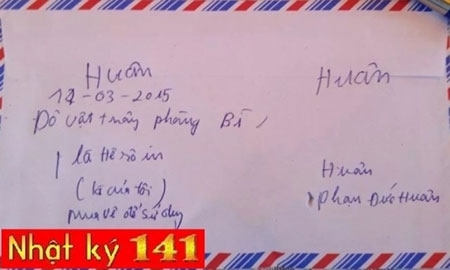 Huân
Huân
12-03-2015
Đồ vật trong phong Bì
1 là Hêrôin
(là của tôi)
mua về để sử dụng
Huân
Phan Đức Huân
Nhật ký 141